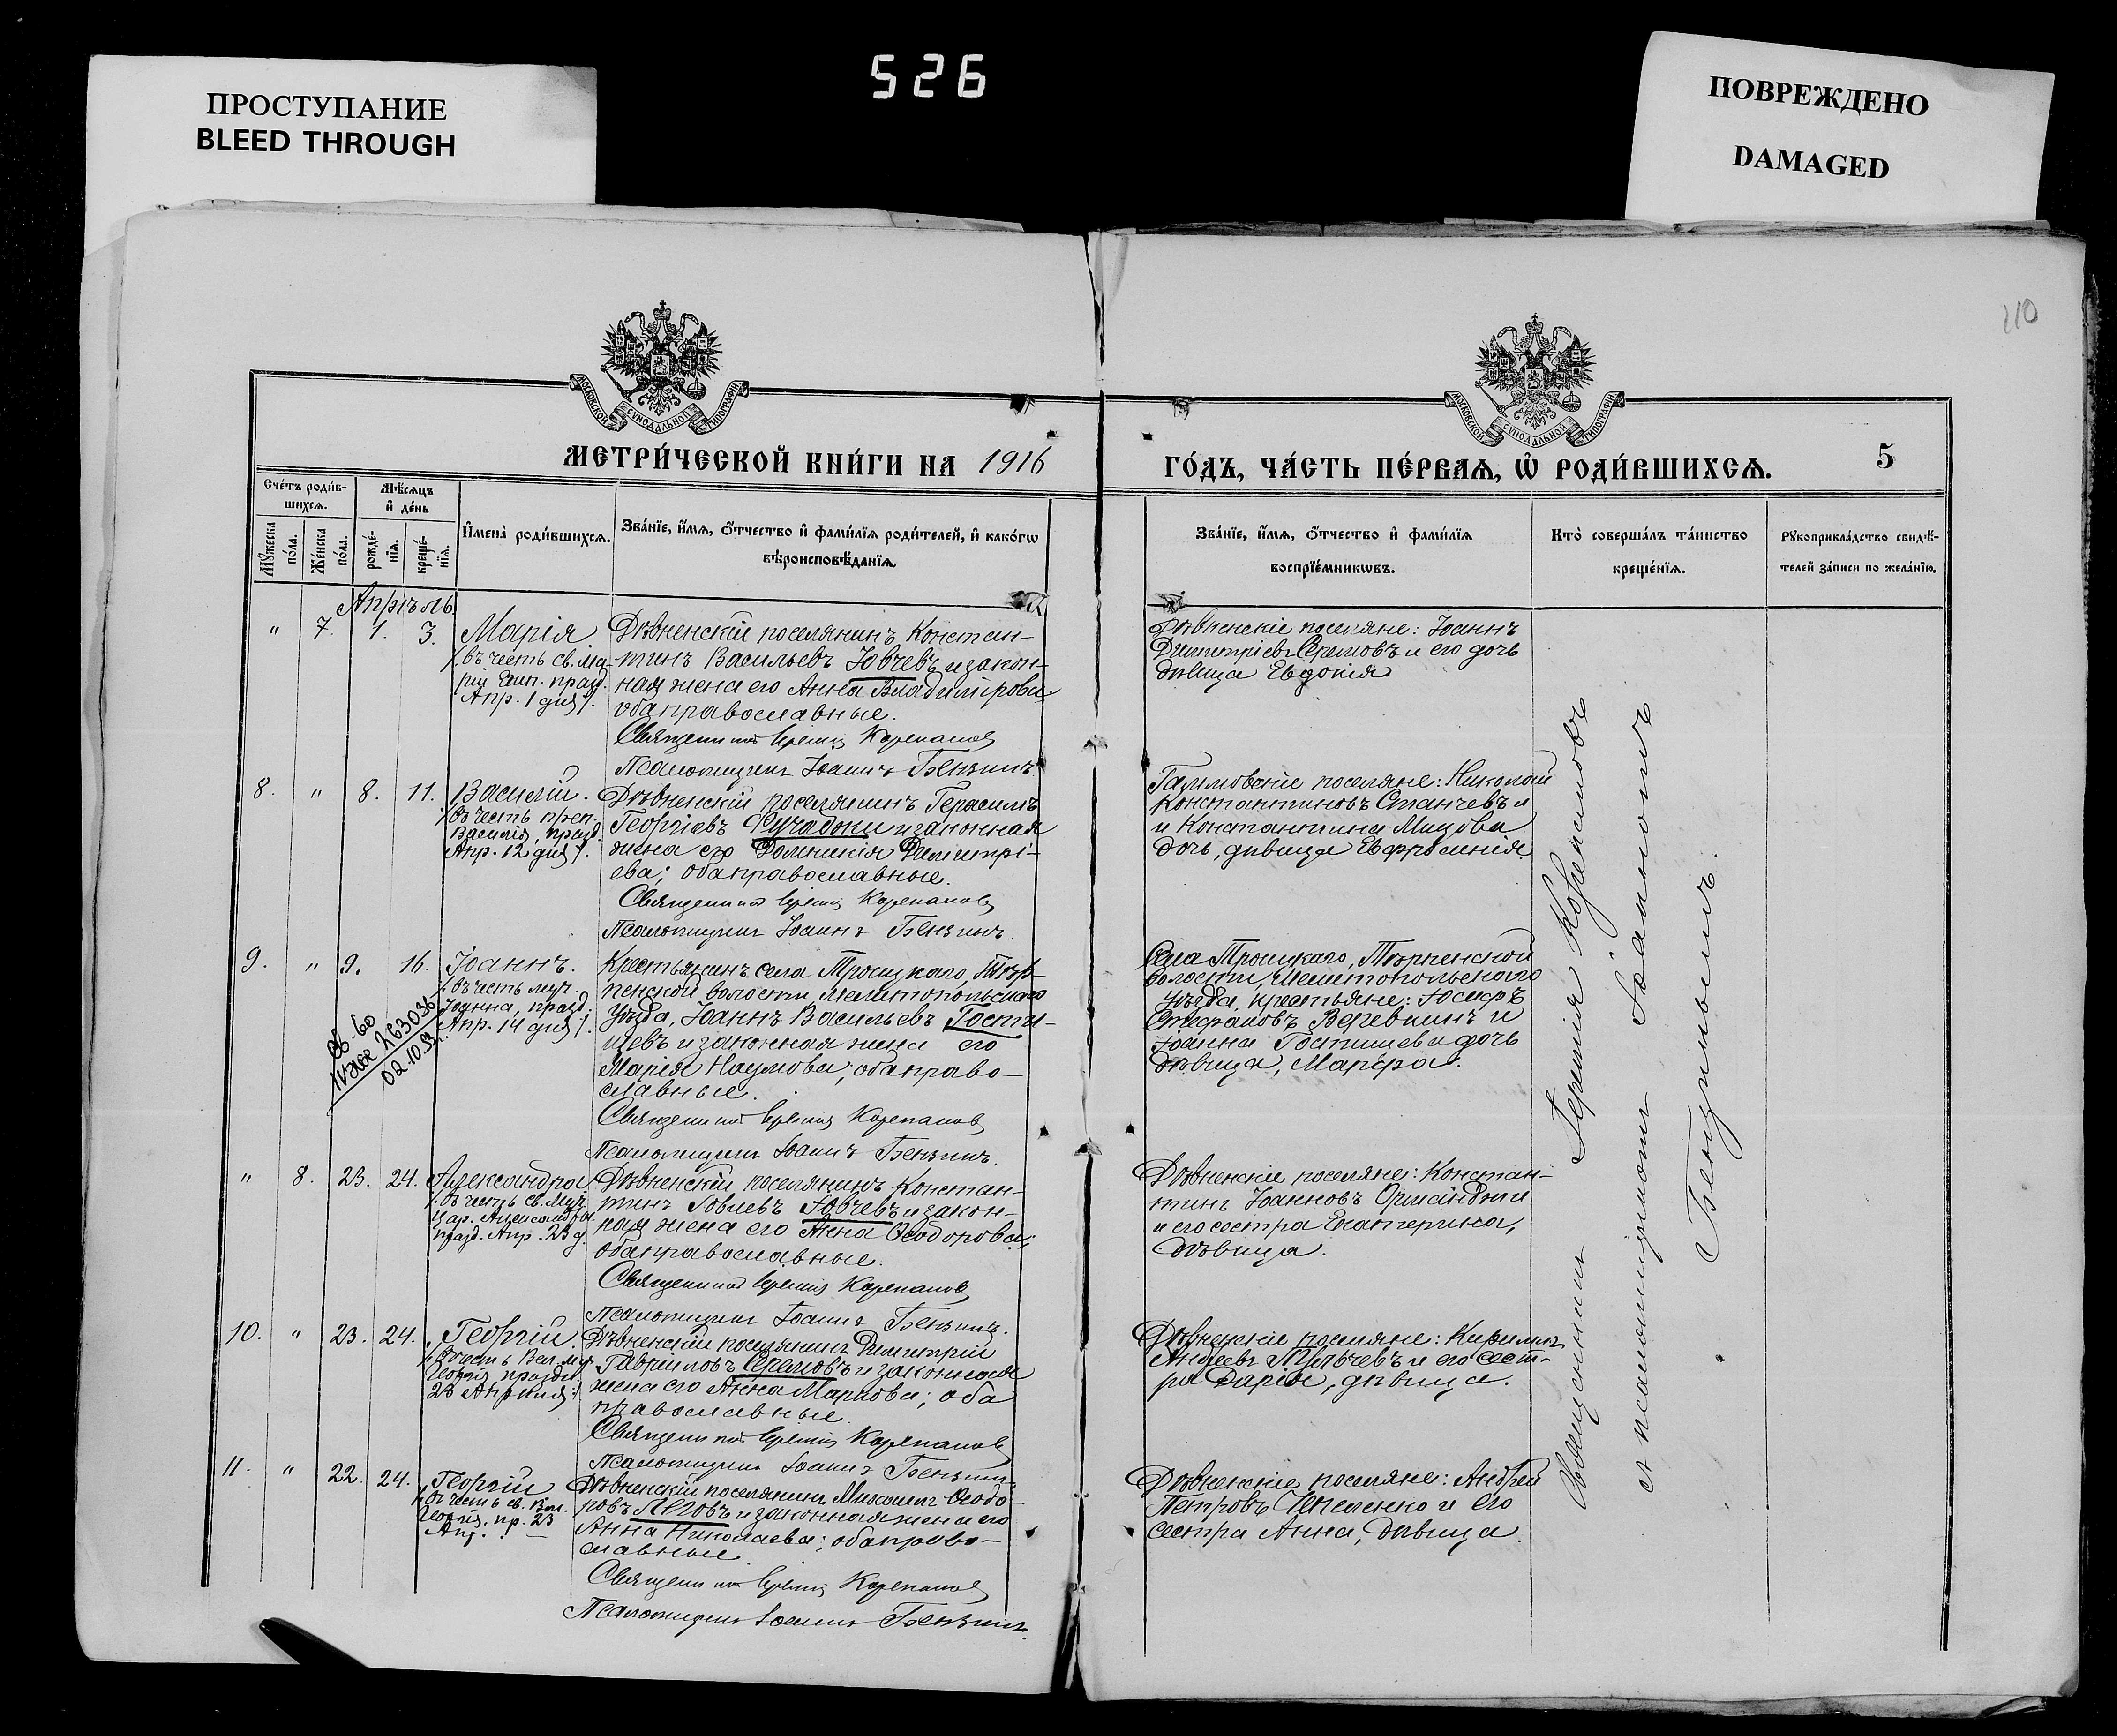 526
ПРОСТУПАНИЕ
BLEED THROUGH
ПОВРЕЖДЕНО
DAMAGED
110
МОСКОВСКОЙ СУНОДАЛЬНОЙ ТИПОГРАФІИ
МОСКОВСКОЙ СУНОДАЛЬНОЙ ТИПОГРАФІИ
МЕТРИ́ЧЕСКОЙ КНИ́ГИ НА 1916
ГО́ДЪ, ЧА́СТЬ ПЕ́РВАѦ, Ѡ҆ РОДИ́ВШИХСѦ. 5
Сче́тъ роди́в-
шихсѧ.
Мѣ́сѧцъ
и҆ де́нь
Мꙋ́жеска
по́ла.
Же́нска
по́ла.
рожде́-
нїѧ.
креще́-
нїѧ.
И҆мена̀ роди́вшихсѧ.
Зва́нїе, и҆́мѧ, ѻ҆́тчество и҆ фами́лїѧ роди́телей, и҆ како́гѡ
вѣроисповѣ́данїѧ.
Зва́нїе, и҆́мѧ, ѻ҆́тчество и҆ фами́лїѧ
воспрїе́мникѡвъ.
Кто̀ соверша́лъ та́инство
креще́нїѧ.
Рꙋкоприкла́дство свидѣ́-
телей за́писи по жела́нїю.
Апрѣль
" 7. 1. 3. Марія
/: въ честь св. Ма-
ріи Егип. празд.
Апр. 1 дня :/.
Дѣвненскій поселянинъ Констан-
тинъ Васильевъ Ювчевъ и закон-
ная жена его Анна Владимірова
оба православные.
Священникъ Іеремія Корепановъ
Псаломщикъ Іоаннъ Бензинъ.
Дѣвненскіе поселяне: Іоаннъ
Димитріевъ Сремовъ и его дочь
дѣвица Евдокія
8. " 8. 11. Василій.
/: въ честь преп.
Василія, празд.
Апр. 12 дня :/.
Дѣвненскій поселянинъ Герасимъ
Георгіевъ и законная
жена его Домникія Димитрі-
ева; оба православные.
Священникъ Іеремія Корепановъ
Псаломщикъ Іоаннъ Бензинъ.
поселяне: Николай
Константиновъ Станчевъ и
и Константина Мицова
дочь, дѣвица Евфросинія.
9. " 9. 16. Іоаннъ.
/: въ честь муч.
Іоанна, празд.
Апр. 14 дня :/.
св-во
02.10.93
Крестьянинъ села Троицкаго, Тѣрп-
пенской волости, Мелитопольскаго
уѣзда, Іоаннъ Васильевъ Гости-
щевъ и законная жена его
Марія Наумова; оба право-
славные.
Священникъ Іеремія Корепановъ
Псаломщикъ Іоаннъ Бензинъ.
Села Троицкаго, Тѣрпенской
волости, Мелитопольскаго
уѣзда, крестьяне: Іосифъ
Стефановъ Веревкинъ и
Іоанна Гостищева дочь
дѣвица, Марѳа.
" 8. 23. 24. Александра
/: въ честь св. Муч.
Цар. Александры
празд. Апр. 23 д.
Дѣвненскій поселянинъ Констан-
тинъ Іовлевъ Ювчевъ и закон-
ная жена его Анна Ѳеодорова;
оба православные.
Священникъ Іеремія Корепановъ
Псаломщикъ Іоаннъ Бензинъ.
Дѣвненскіе поселяне: Констан-
тинъ Іоанновъ Орманджи
и его сестра Екатерина,
дѣвица.
10. " 23. 24. Георгій.
/: въ честь Вел. Муч.
Георгія, праздн.
23 Апрѣля :/
Дѣвненскій поселянинъ Димитрій
Гавріиловъ Сремовъ и законная
жена его Анна Маркова; оба
православные.
Священникъ Іеремія Корепановъ
Псаломщикъ Іоаннъ Бензинъ
Дѣвненскіе поселяне: Кириллъ
Андреевъ и его сест-
ра Дарія, дѣвица.
11. " 22. 24. Георгій
/: въ честь св. Вел.
Георгія, пр. 23
Апр.
Дѣвненскій поселянинъ Михаилъ Ѳеодо-
ровъ и законная жена его
Анна Николаева; оба право-
славные.
Священникъ Іеремія Корепановъ
Псаломщикъ Іоаннъ Бензинъ.
Дѣвненскіе поселяне: Андрей
Петровъ и его
сестра Анна, дѣвица.
Священникъ Іеремія Корепановъ
съ псаломщикомъ Іоанномъ
Бензинымъ.